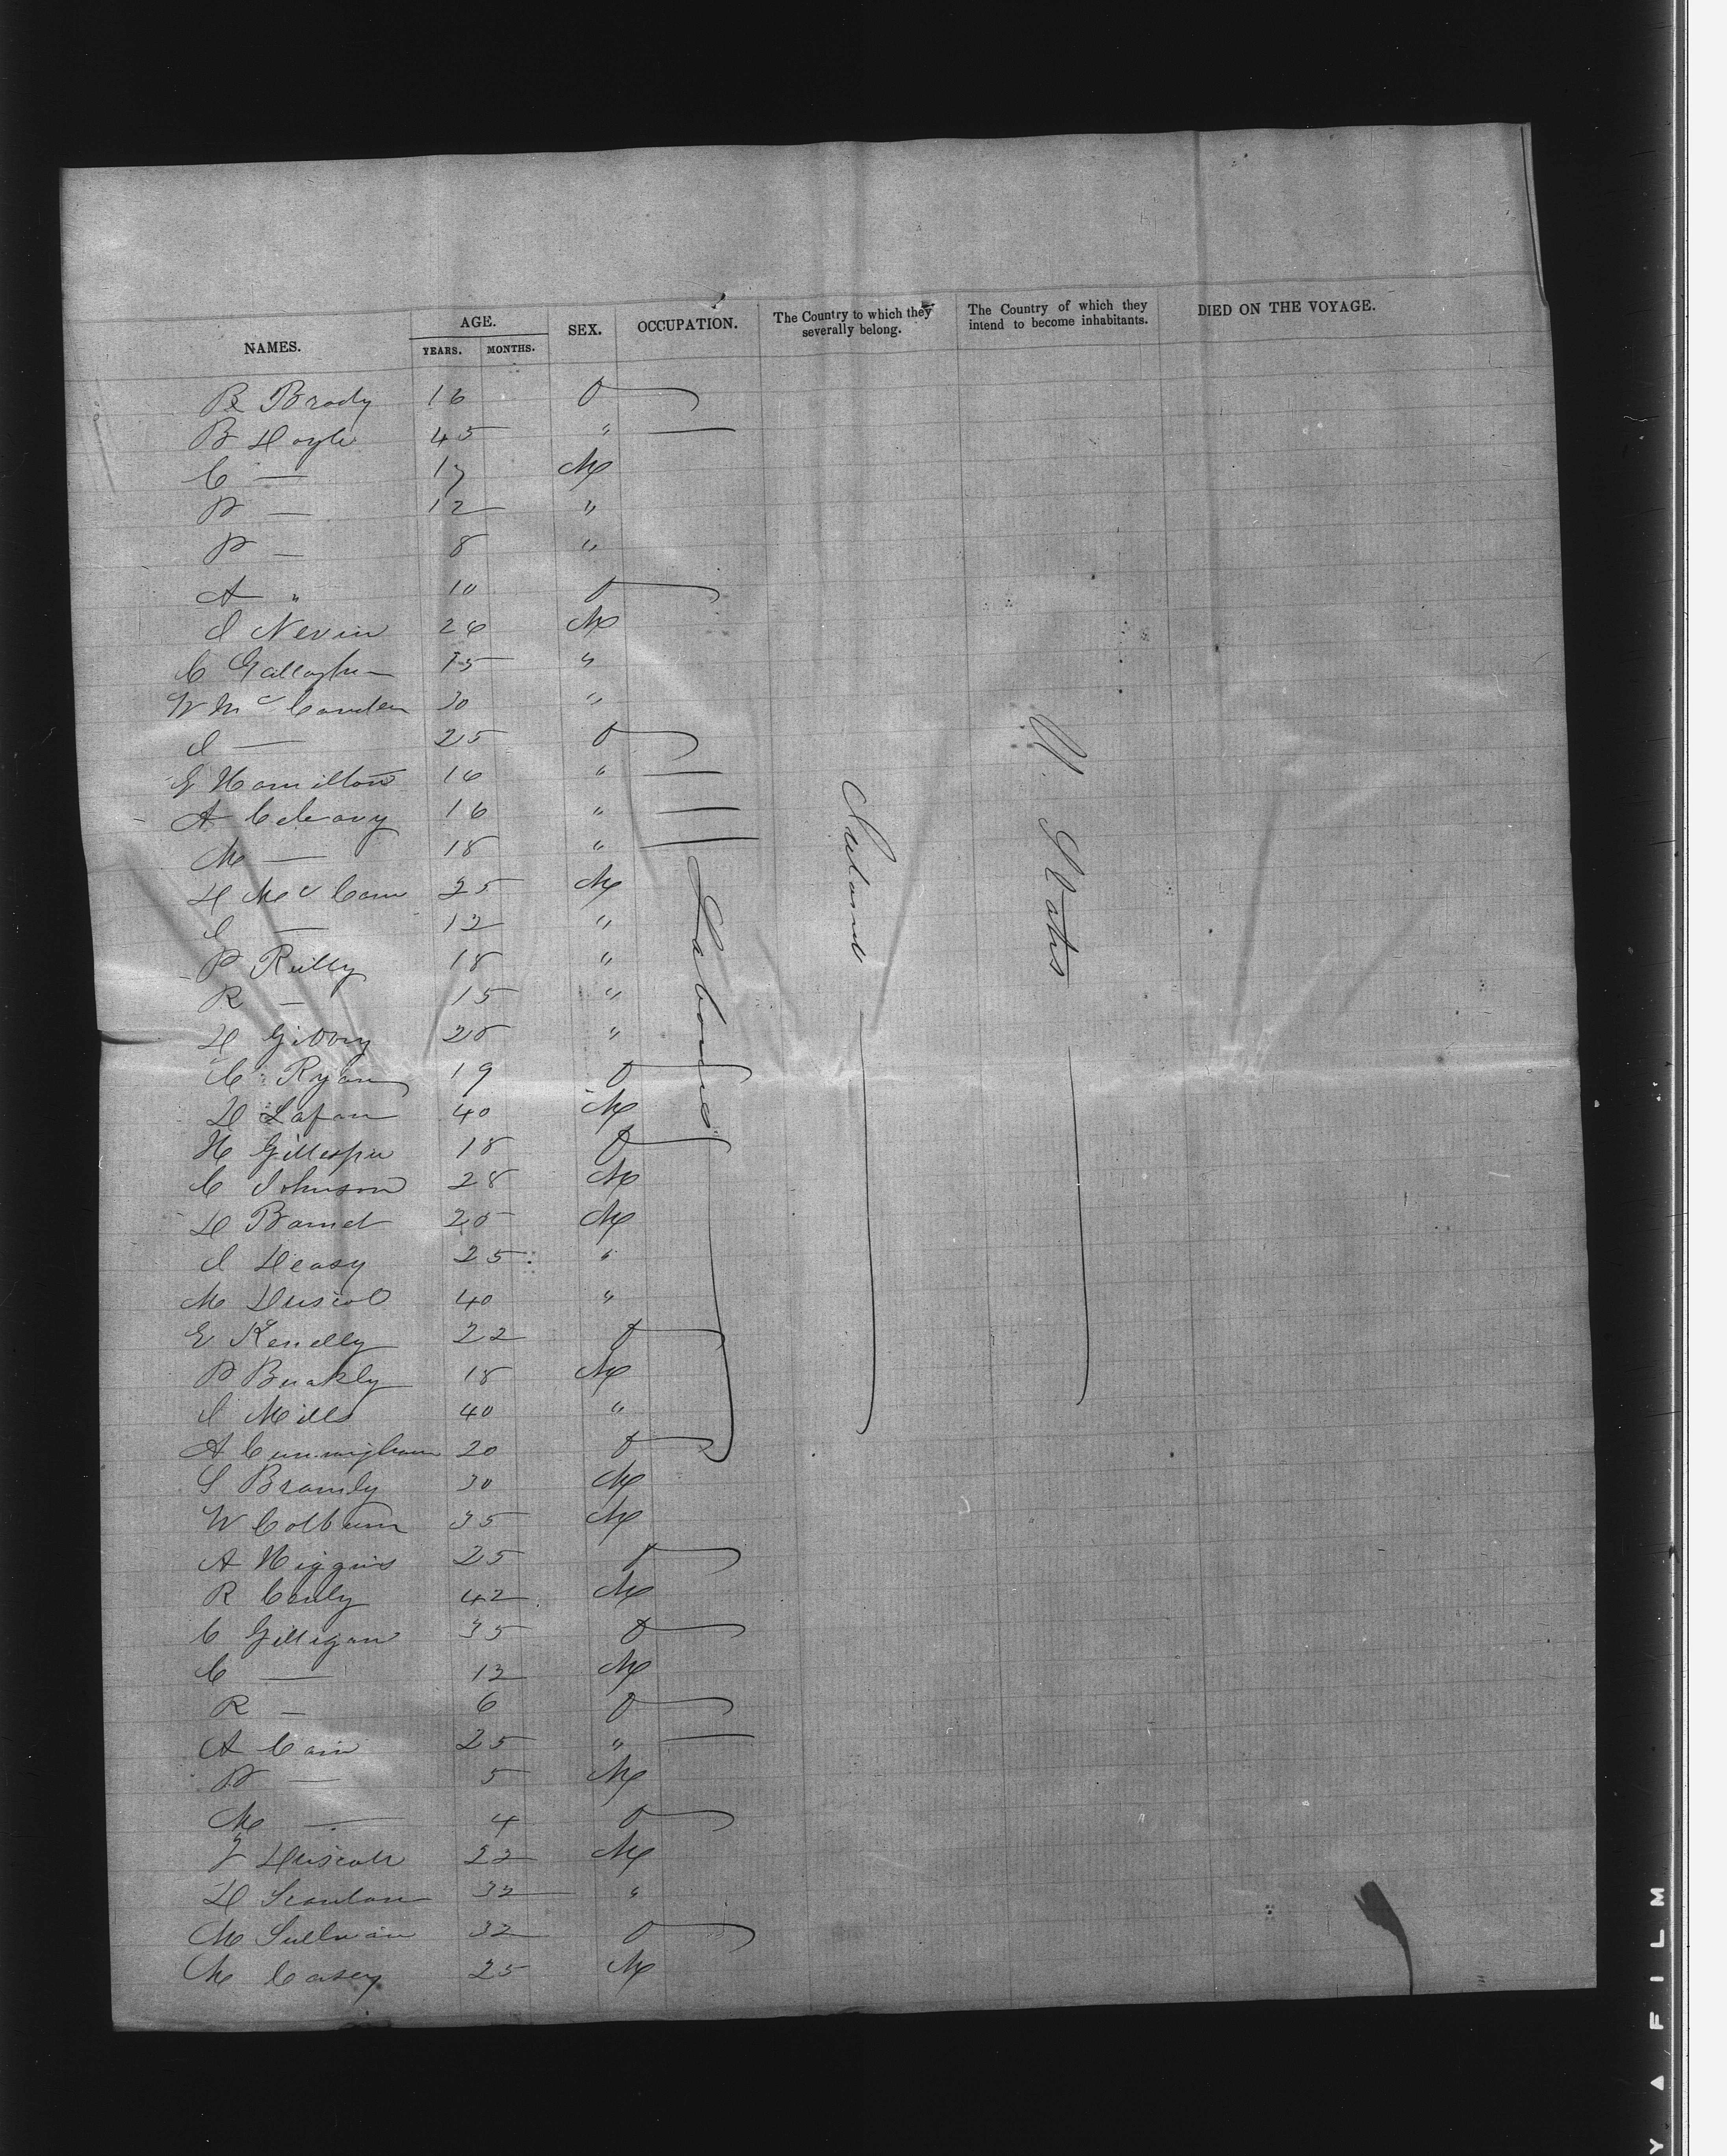 NAMES. AGE. YEARS. MONTHS. SEX. OCCUPATION. The Country to which they severally belong. The Country of which they intend to become inhabitants. DIED ON THE VOYAGE.
B Brady 16
B Doyle 45 "
C — 17 M
P — 12 "
P — 8 "
A " 10
J Nevin 26 M
C Gallagher 15 "
W Mc 30 "
J — 25
E Hamilton 16 "
A Cleary 16 "
M — 18 "
D Mc Cann 25 M
J — 12 "
P Reilly 18 "
R — 15 "
D 20 "
C Ryan 19
D Lafan 40 M
H Gillespie 18
C Johnson 28 M
D Barnet 20 M
J Deasy 25 "
M Driscol 40 "
E Kenelly 22
P Buakly 18 M
J Mills 40 "
A Cunningham 20
S Bramly 30 M
W Colburn 35 M
A Higgins 25
R 42 M
C Gilligan 35
C — 12 M
R — 6
A Cain 25 "
P — 5 M
M — 4
J Driscoll 22 M
D Scanlan 32 "
M Sullivan 32
M Casey 25 M
Labourers
Ireland
U. States
Y A FILM